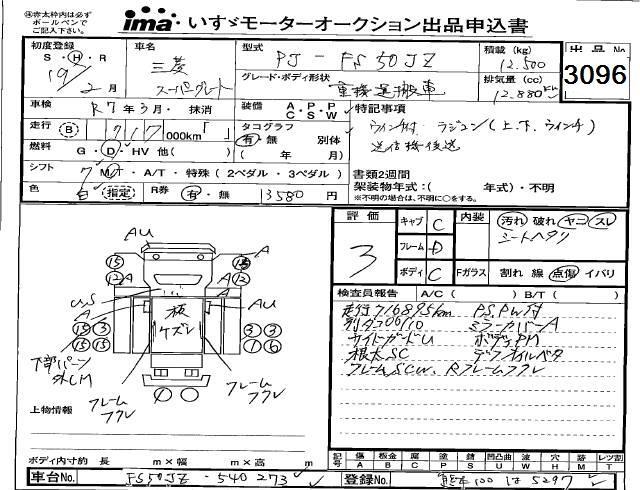 ㊟赤太枠内は必ず
ボールペンで
ご記入下さい。
ima いすゞモーターオークション出品申込書
初度登録 車名 型式 PJ-FS50JZ 積載(kg) 12.500 出品No.
S・H・R 19/2月 三菱 スーパーグレート グレード・ボディ形状 重機運搬車 排気量(cc) 12.880 3096
車検 R7年3月・抹消 装備 A・P・P C・S・W 特記事項
走行 B 717 000km「 」 タコグラフ 有・無 別体 ウインチ付 ラジコン(上、下、ウインチ)
燃料 G・D・HV 他( ) ( 年 月) 送信機後送
シフト 7 MT・A/T・特殊(2ペダル・3ペダル) 書類2週間
色 白 指定 R券 有・無 13580円 架装物年式:( 年式)・不明
※不明の場合は、不明に○をする。
評価 3
キャブ C 内装 汚れ 破れ ヤニ スレ
フレーム D シートヘタリ
ボディ C Fガラス 割れ 線 点傷 イバリ
検査員報告 A/C( ) B/T( )
走行716895km PS,PW付
ミラーカバーA
サイドガードU ボディPM
根太SC デフオイルベタ
フレームSCW、Rフレームフクレ
AU
A
A
15
15
12
A
12
US
A
A
AU
板ケズレ
15
15
15
15
3
3
1
6
下部パーツ
外しM
フレーム
フクレ
フレーム
フクレ
上物情報
ボディ内寸約 長 m×幅 m×高 m
記号 傷A 板金B 腐C 塗P 錆S 凹凸曲U 波W 穴H 跡M レツ割T
車台No. FS50JZ-540273 登録No. 熊本100は5297